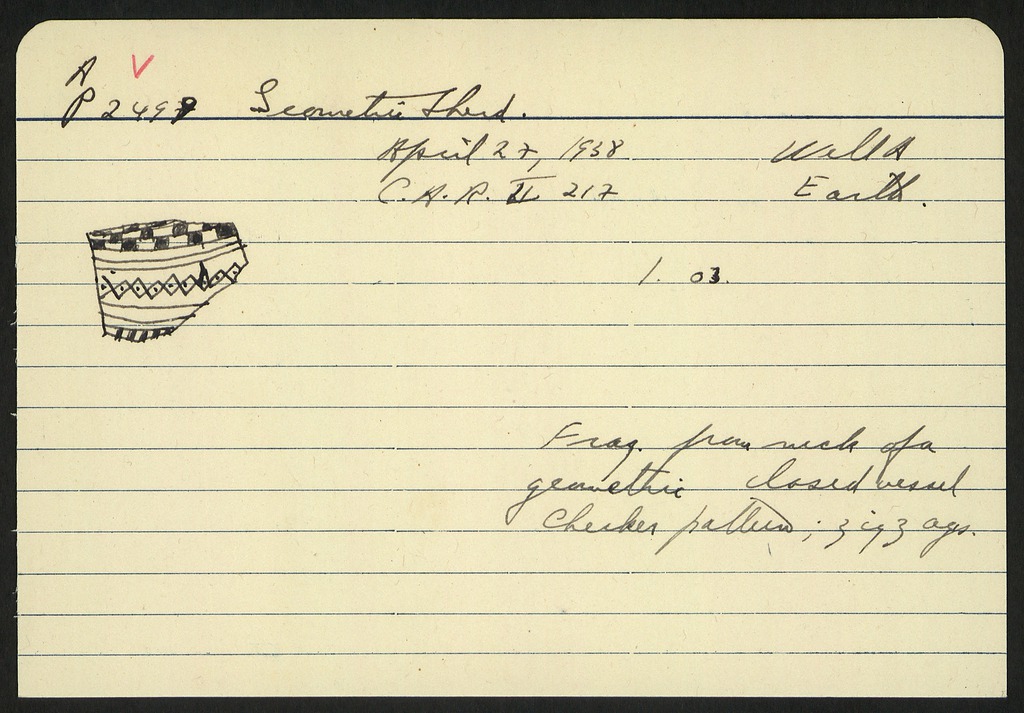 A V
P 2497 Geometric Sherd.
April 27, 1938 Well A
C.A.R. II 217 Earth.
1. 03.
Frag. from neck of a
geometric closed vessel
Checker pattern; zigzags.